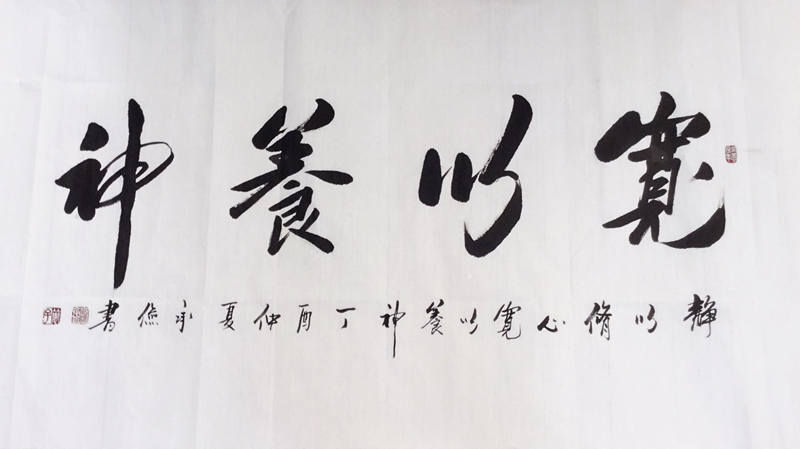 寬以養神
靜以脩心寬以養神丁酉仲夏承傑書